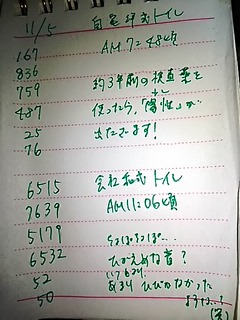 11/5 自宅洋式トイレ
167 AM 7:48頃
836
759 約3年前の検査薬を
487 使ったら、「陽性」が
25 出たでます!
76
6515 会社和式トイレ
7639 AM11:06頃
5179
6532 ひかえめな音?
52 ひびかなかった
50